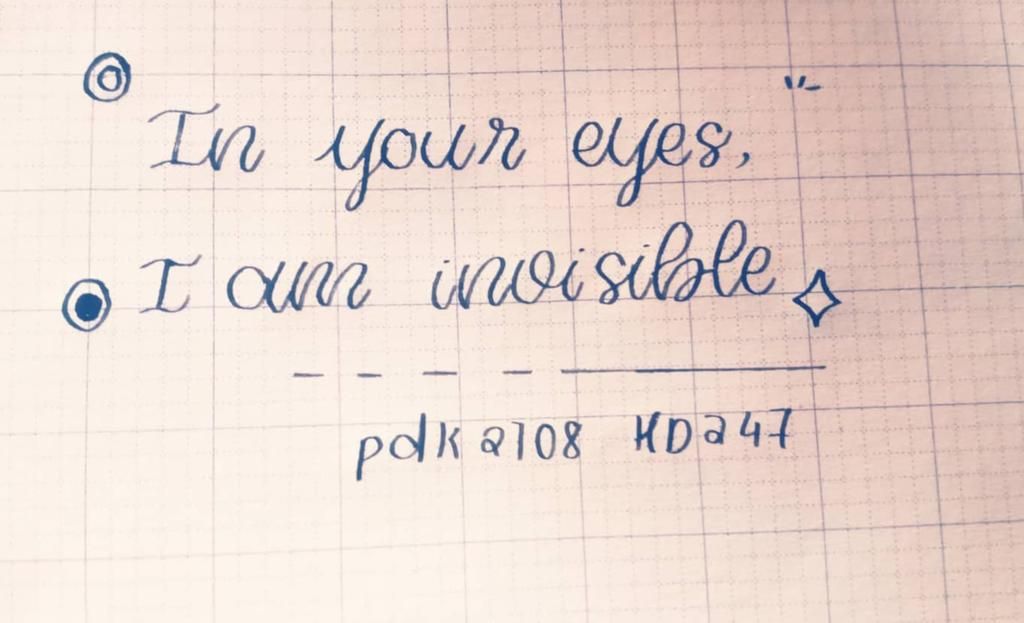 In your eyes,
I am invisible
pdk2708 HD247